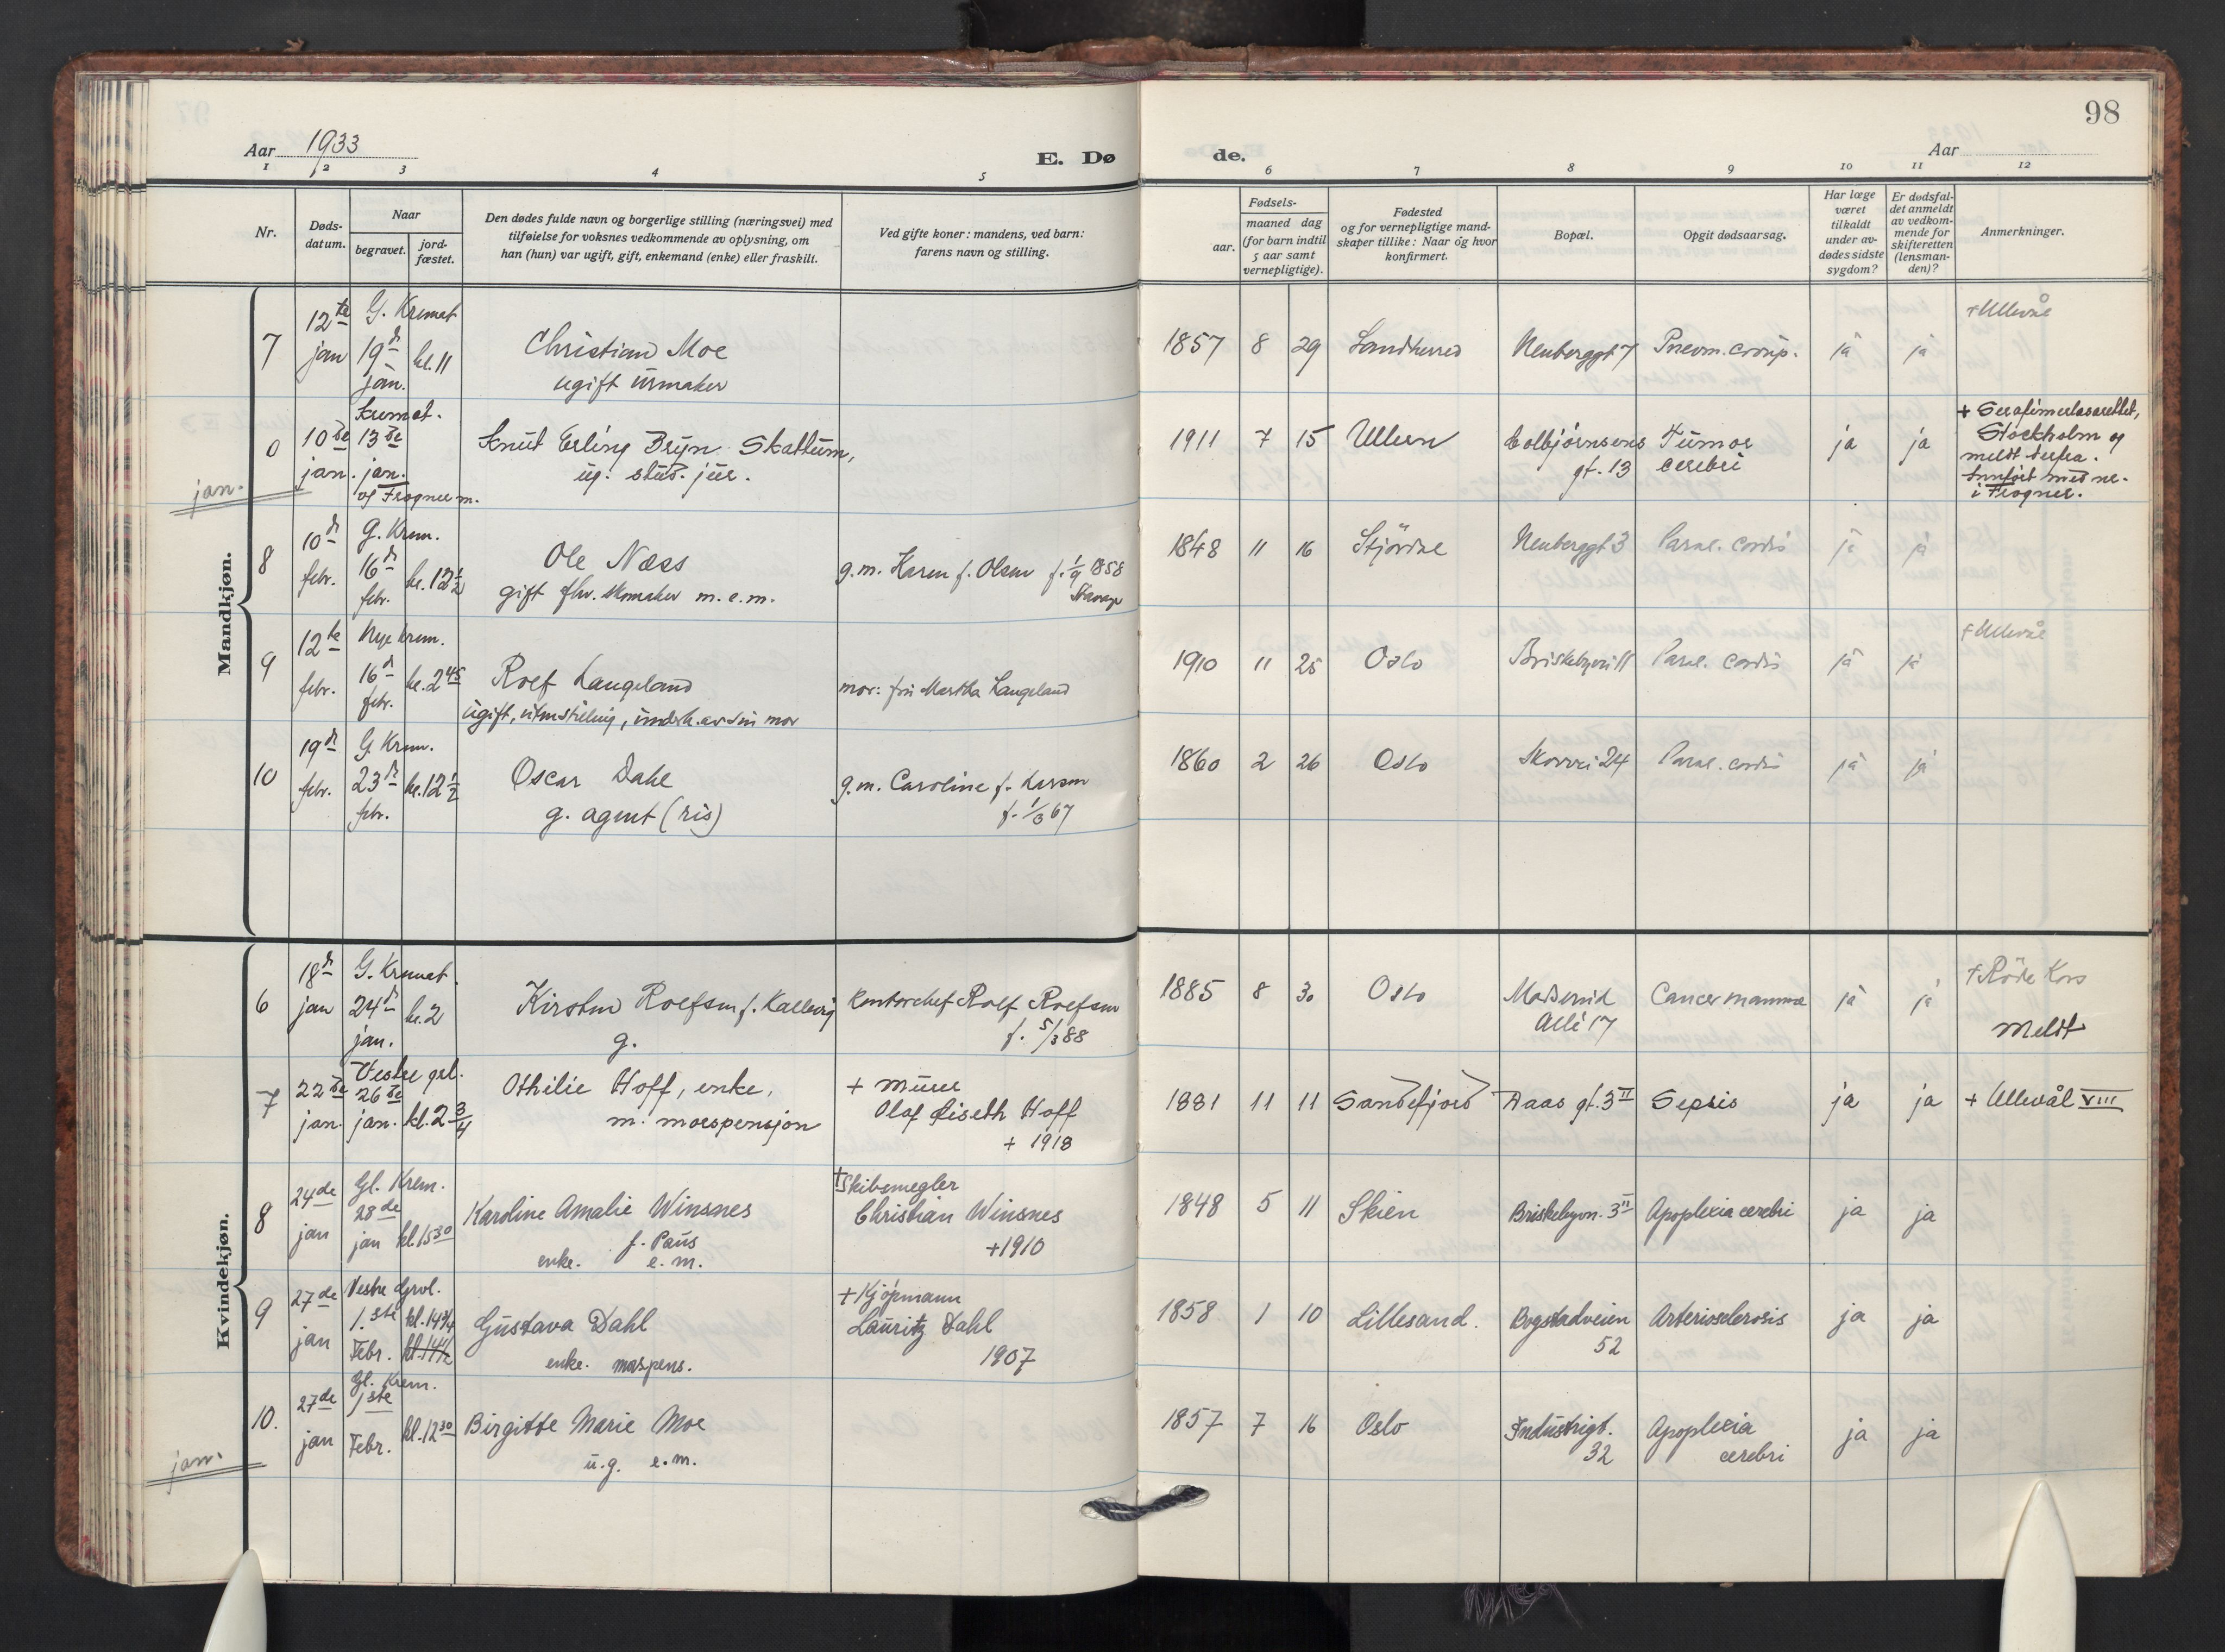 98
Aar 1933
E. Dø
de.
Aar
1 2 3 4 5 6 7 8 9 10 11 12
Nr.
Døds-
datum.
Naar
begravet.
jord-
fæstet.
Den dødes fulde navn og borgerlige stilling (næringsvei) med
tilføielse for voksnes vedkommende av oplysning, om
han (hun) var ugift, gift, enkemand (enke) eller fraskilt.
Ved gifte koner: mandens, ved barn:
farens navn og stilling.
Fødsels-
aar.
maaned dag
(for barn indtil
5 aar samt
vernepligtige).
Fødested
og for vernepligtige mand-
skaper tillike: Naar og hvor
konfirmert.
Bopæl.
Opgit dødsaarsag.
Har læge
været
tilkaldt
under av-
dødes sidste
sygdom?
Er dødsfal-
det anmeldt
av vedkom-
mende for
skifteretten
(lensman-
den)?
Anmerkninger.
Mandkjøn.
7
12te
jan
G. Kremat
19d
jan.
kl. 11
Christian Moe
ugift urmaker
1857 8 29
Neuberggt 7
Pneum. croup.
ja ja
+ Ullevål
0
10de
jan.
Kremat.
13de
jan.
av Frogner m.
Knut Erling Bryn Skattum,
ug. stud. jur.
1911 7 15 Ullern
Colbjørnsens
gt. 13
Tumor
cerebri
ja ja
+ Serafimerlasarettet,
Stockholm og
meldt derfra.
Innført med nr.
i Frogner.
jan.
8
10d
febr.
G. Krem.
16d
febr.
kl. 12½
Ole Næss
gift fhv. skomaker m. e. m.
g. m. Karen f. Olsen f. 1/9 1858
1848 11 16 Stjørdal
Neuberggt 3
Paral. cordis
ja ja
9
12te
febr.
Nye krem.
16d
febr.
kl. 2 45
Rolf Langeland
ugift, uten stilling, underh. av sin mor
mor: fru Martha Langeland
1910 11 25 Oslo
Briskebyvei 11
Paral. cordis
ja ja
+ Ullevål
10
19d
febr.
G. Krem.
23d
febr.
kl. 12½
Oscar Dahl
g. agent (ris)
g. m. Caroline f. Larsen
f. 1/3 67
1860 2 26 Oslo
Skovvei 24
Paral. cordis
ja ja
Kvindekjøn.
6
18d
jan
G. Kremat.
24d
jan.
kl. 2
Kirsten Rolfsen f. Kallevig
g.
Kontorchef Rolf Rolfsen
f. 5/3 88
1885 8 30 Oslo
Madserud
Allé 17
Cancer mammæ
ja ja
+ Røde Kors
Meldt
7
22de
jan.
Vestre grl.
26de
jan.
kl. 2¾
Othilie Hoff, enke,
m. morspensjon
+ murer
Olaf Liseth Hoff
+ 1918
1881 11 11 Sandefjord
Aaas gt. 3 II
Sepsis
ja ja
+ Ullevål VIII
8
24de
jan
Gl. Krem.
28de
jan
kl. 15 30
Karoline Amalie Winsnes
f. Paus
enke. e. m.
+ Skibsmegler
Christian Winsnes
+1910
1848 5 11 Skien
Briskebyvn. 3 II
Apoplexia cerebri
ja ja
9
27de
jan
Vestre Grvl.
1.ste
Febr.
kl. 14¾
kl. 14½
Gustava Dahl
enke. morspens.
+ Kjøpmann
Lauritz Dahl
1907
1858 1 10 Lillesand.
Bogstadveien
52
Arteriosclerosis
ja ja
10.
27de
jan
Gl. Krem.
1ste
Febr.
kl. 12 30
Birgitte Marie Moe
u.g. e. m.
1857 7 16 Oslo
Industrigt.
32
Apoplexia
cerebri
ja ja
jan.